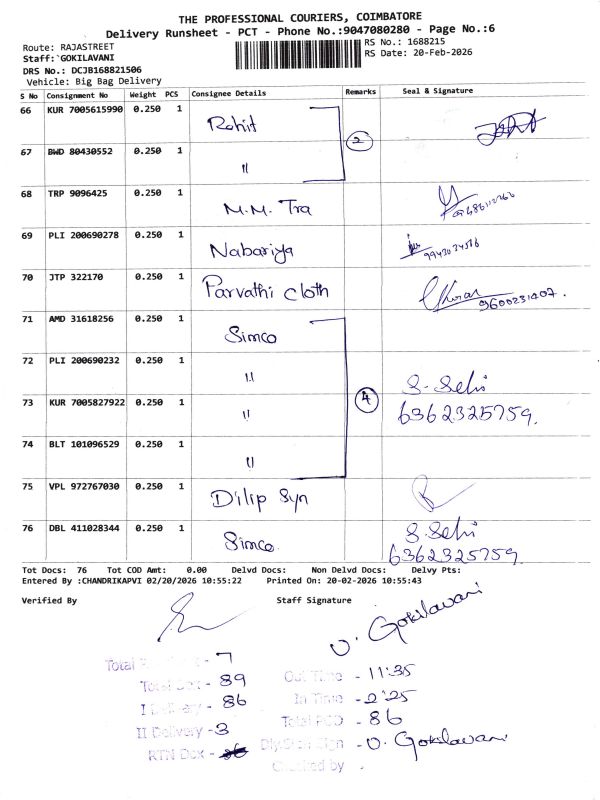 THE PROFESSIONAL COURIERS, COIMBATORE
Delivery Runsheet - PCT - Phone No.:9047080280 - Page No.:6
Route: RAJASTREET
RS No.: 1688215
Staff:`GOKILAVANI
RS Date: 20-Feb-2026
DRS No.: DCJB168821506
Vehicle: Big Bag Delivery
S No Consignment No Weight PCS Consignee Details Remarks Seal & Signature
66 KUR 7005615990 0.250 1 Rohit
2
67 BWD 80430552 0.250 1 "
68 TRP 9096425 0.250 1 M.M. Tra
69 PLI 200690278 0.250 1 Nabariya
70 JTP 322170 0.250 1 Parvathi cloth 9600231407.
71 AMD 31618256 0.250 1 Simco
72 PLI 200690232 0.250 1 "
4 S. Selvi
73 KUR 7005827922 0.250 1 " 6362325759.
74 BLT 101096529 0.250 1 "
75 VPL 972767030 0.250 1 Dilip Syn
76 DBL 411028344 0.250 1 Simco S. Selvi
6362325759
Tot Docs: 76 Tot COD Amt: 0.00 Delvd Docs: Non Delvd Docs: Delvy Pts:
Entered By :CHANDRIKAPVI 02/20/2026 10:55:22 Printed On: 20-02-2026 10:55:43
Verified By Staff Signature
V. Gokilavani
Total - 7 Out Time - 11:35
Total Dox - 89 In Time - 2:25
I Delivery - 86 Total POD - 86
II Delivery - 3 Dly Staff Sign - V. Gokilavani
RTN Dox - Checked by